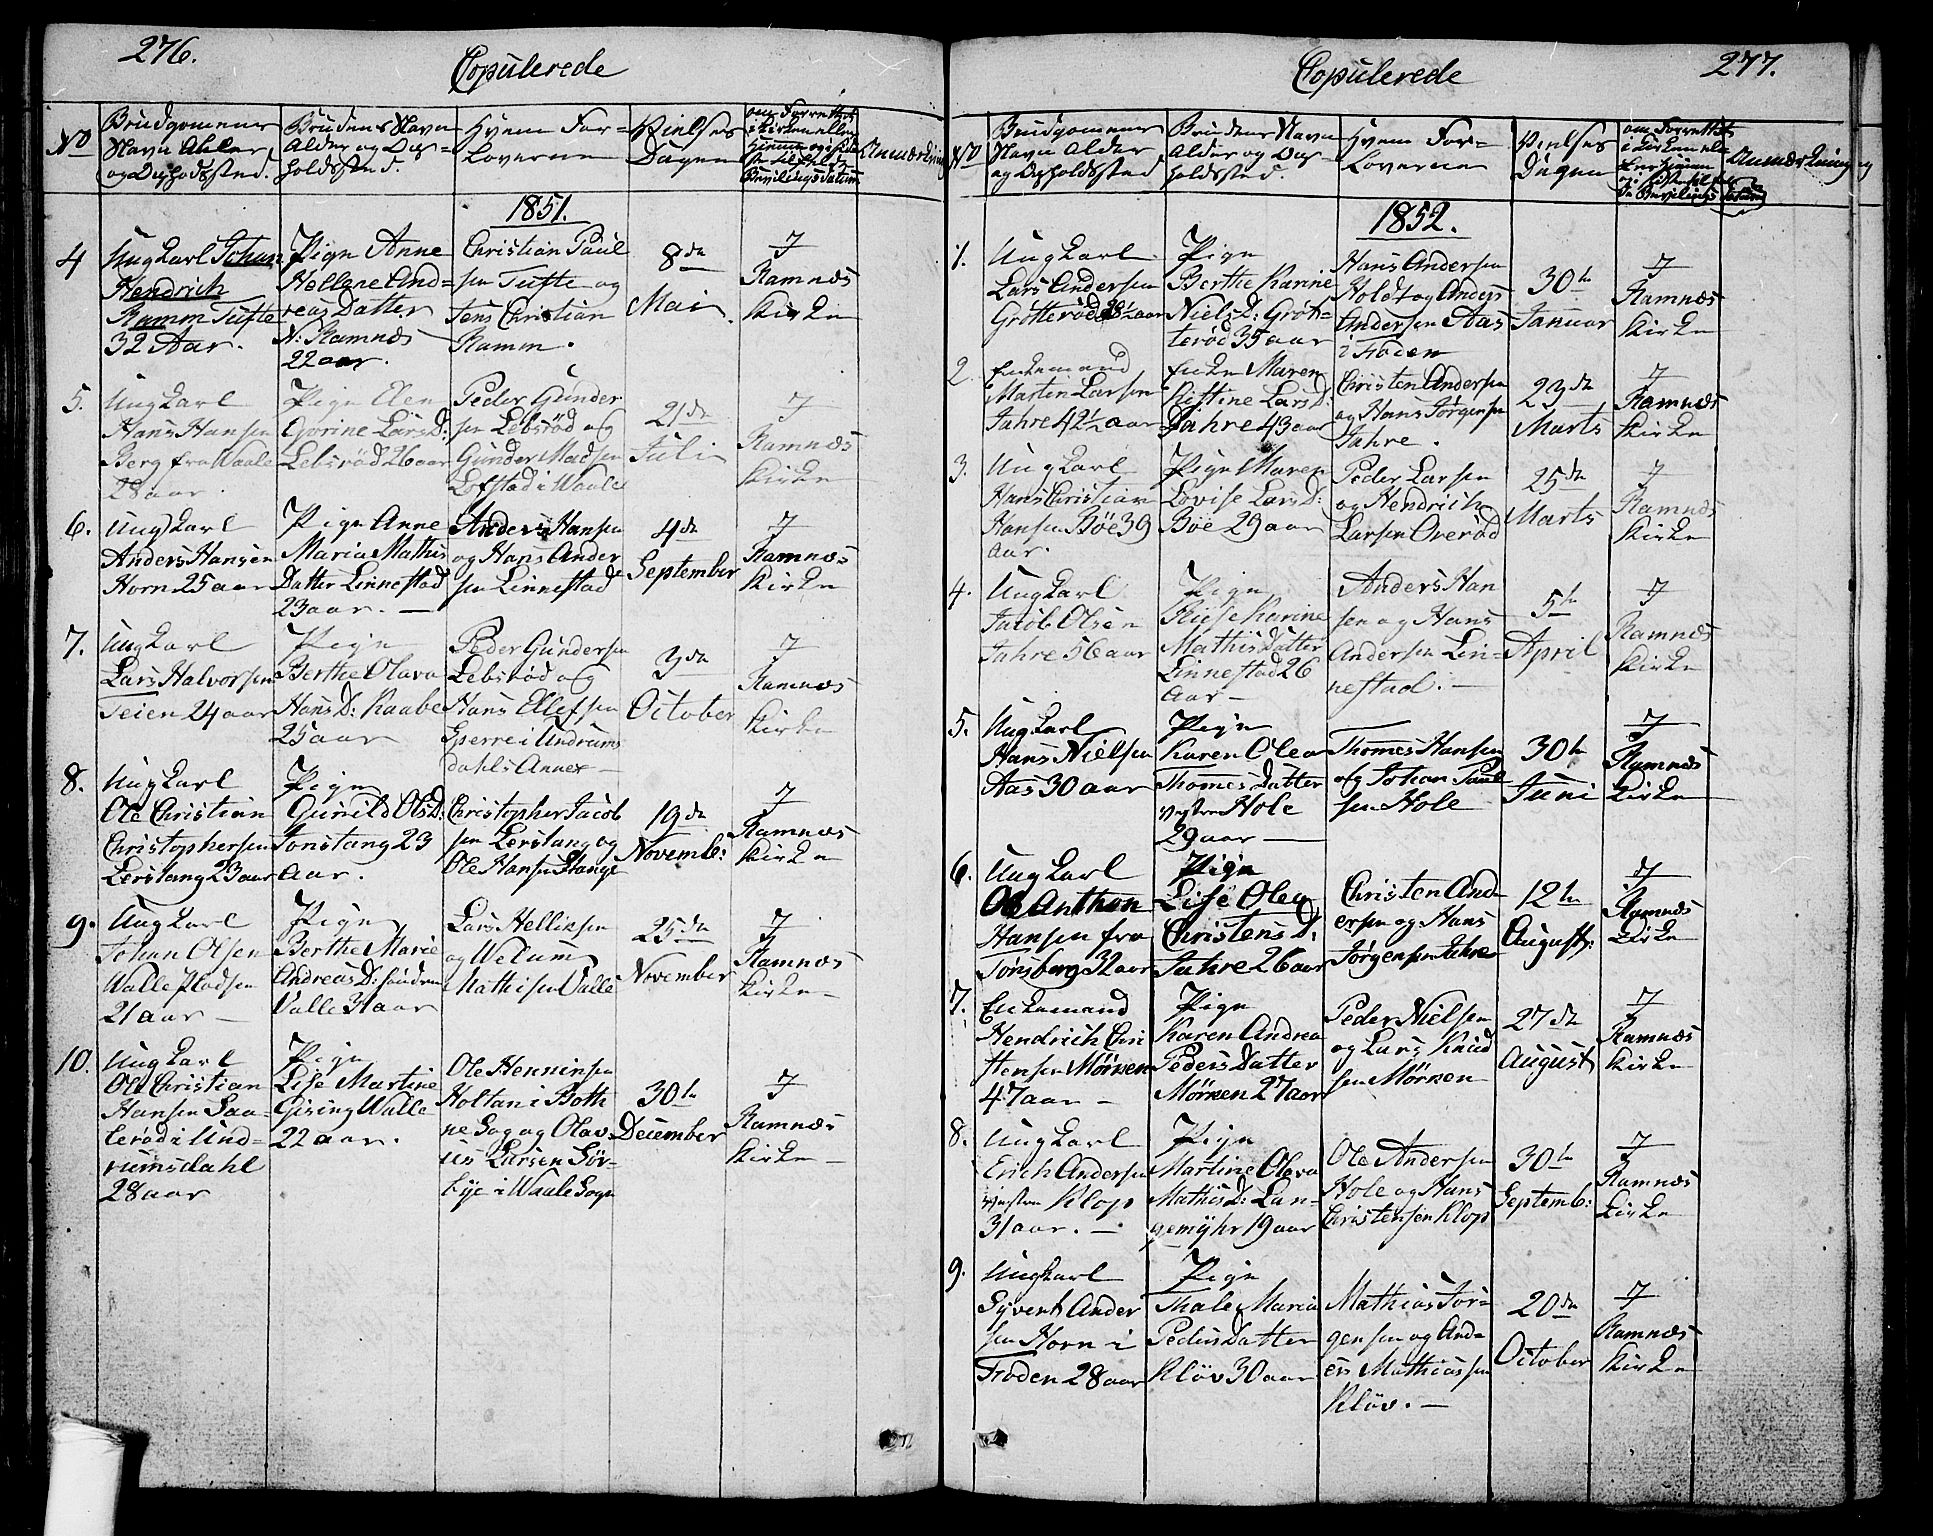 276.
Copulerede
No
Brudgomenes Navn Alder og Opholdssted.
Brudens Navn Alder og Opholdssted.
Hvem Forloverne
Vielses Dagen
om Forrettet i Kirken eller hjemme og i sidste Tilfælde Bevilings datum
Anmærkning
1851.
4
Ungkarl Johan
Hendrich
Ramm Tufte
32 Aar.
Pige Anne
Hellene And=
reas Datter
N: Ramnæs
22 aar.
Christian Paul
sen Tufte og
Jens Christian
Ramm.
8de
Mai.
I
Ramnæs
Kirke
5.
Ungkarl
Hans Hansen
Berg fra Waale
28 aar.
Pige Elen
Gorine Lars D:
Lebsrød 26 aar
Peder Gunder
sen Lebsrød og
Gunder Madsen
Lofstad i Waale
21de
Juli
I
Ramnæs
Kirke
6.
Ungkarl
Anders Hansen
Horn 25 aar
Pige Anne
Maria Mathis
Datter Linnestad
23 aar. —
Anders Hansen
og Hans Ander
sen Linnestad
4de
September
I
Ramnæs
Kirke
7.
Ungkarl
Lars Halvorsen
Teien 24 aar
Pige
Berthe Olava
Hans D: Raabe
25 aar
Peder Gundersen
Lebsrød og
Hans Ellefsen
Sperre i Undrums
dahls Annex —
3de
October
I
Ramnæs
Kirke
8.
Ungkarl
Ole Christian
Christophersen
Lerstang 23 aar
Pige
Gunild Ols D:
Tonstang 23
aar.
Christopher Jacob
sen Lerstang og
Ole Hansen Stange
19de
Novemb:
I
Ramnæs
Kirke
9.
Ungkarl
Johan Olsen
Walle Pladsen
21 aar —
Pige
Berthe Marie
Andreas D: søndre
Valle 31 aar
Lars Helliksen
og Welum
Mathisen Valle
25de
November
I
Ramnæs
Kirke —
10.
Ungkarl
Ole Christian
Hansen Saa=
terød i Und=
rumsdahl
28 aar
Pige
Lise Martine
Gising Walle
22 aar.
Ole Henninsen
Holtan i Both
ne Sog og Olav=
us Larsen Sør=
bye i Waale Sogn
30te
December
I
Ramnæs
Kirke —
277.
Copulerede
No
Brudgomenes Navn Alder og Opholdssted
Brudens Navn Alder og Opholdssted.
Hvem Forloverne
Vielses Dagen
om Forrettet i Kirken eller hjemme og i sidste Tilfælde Bevilings datum
Anmærkning
1852.
1.
Ungkarl
Lars Andersen
Grotterød 28½ aar
Pige
Berthe Karine
Niels D: Grøt=
terød 35 aar
Hans Andersen
Holdt og Anders
Andersen Aas
i Froden
30te
Januar
I
Ramnæs
Kirke
2.
Enkemand
Martin Larsen
Jahre 42½ aar
Enke Maren
Kistine Lars D:
Jahre 43 aar
Christen Andersen
og Hans Jørgensen
Jahre.
23de
Marts
I
Ramnæs
Kirke
3.
Ungkarl
Hans Christian
Hansen Bøe 39
aar.
Pige Maren
Lovise Lars D:
Bøe 29 aar
Peder Larsen
og Hendrich
Larsen Overød
25de
Marts
I
Ramnæs
Kirke
4.
Ungkarl
Jacob Olsen
Jahre 56 aar
Pige
Karine
Mathis Datter
Linnestad 26
Aar —
Anders Han
sen og Hans
Andersen Lin=
nestad. —
5te
April
I
Ramnæs
Kirke
5.
Ungkarl
Hans Nielsen
Aas 30 aar
Pige
Karen Olea
Thomes Datter
vestre Hole
29 aar —
Thomes Hansen
og Johan Paul
sen Hole
30te
Juni
I
Ramnæs
Kirke
6.
Ungkarl
Ole Anthon
Hansen fra
Tønsberg 32 aar
Pige
Lise Olea
Christens D:
Jahre 26 aar
Christen And=
ersen og Hans
Jørgensen Jahre
12te
August:
I
Ramnæs
Kirke
7.
Enkemand
Hendrich Chri
stensen Mørken
47 aar —
Pige
Karen Andrea
Peders Datter
Mørken 27 aar
Peder Nielsen
og Lars Knud
sen Mørken
27de
August
I
Ramnæs
Kirke
8.
Ungkarl
Erich Andersen
vestre Klop
31 aar. —
Pige
Martine Olava
Mathis D: Lan=
gemyhr 19 aar
Ole Andersen
Hole og Hans
Christensen Klop
30te
Septemb:
I
Ramnæs
Kirke
9.
Ungkarl
Syvert Ander
sen Horn i
Froden 28 aar
Pige
Thale Maria
Peders Datter
Kløv 30 aar
Mathias Jør=
gensen og And=
ers Mathiassen
Kløv. —
20de
October
I
Ramnæs
Kirke